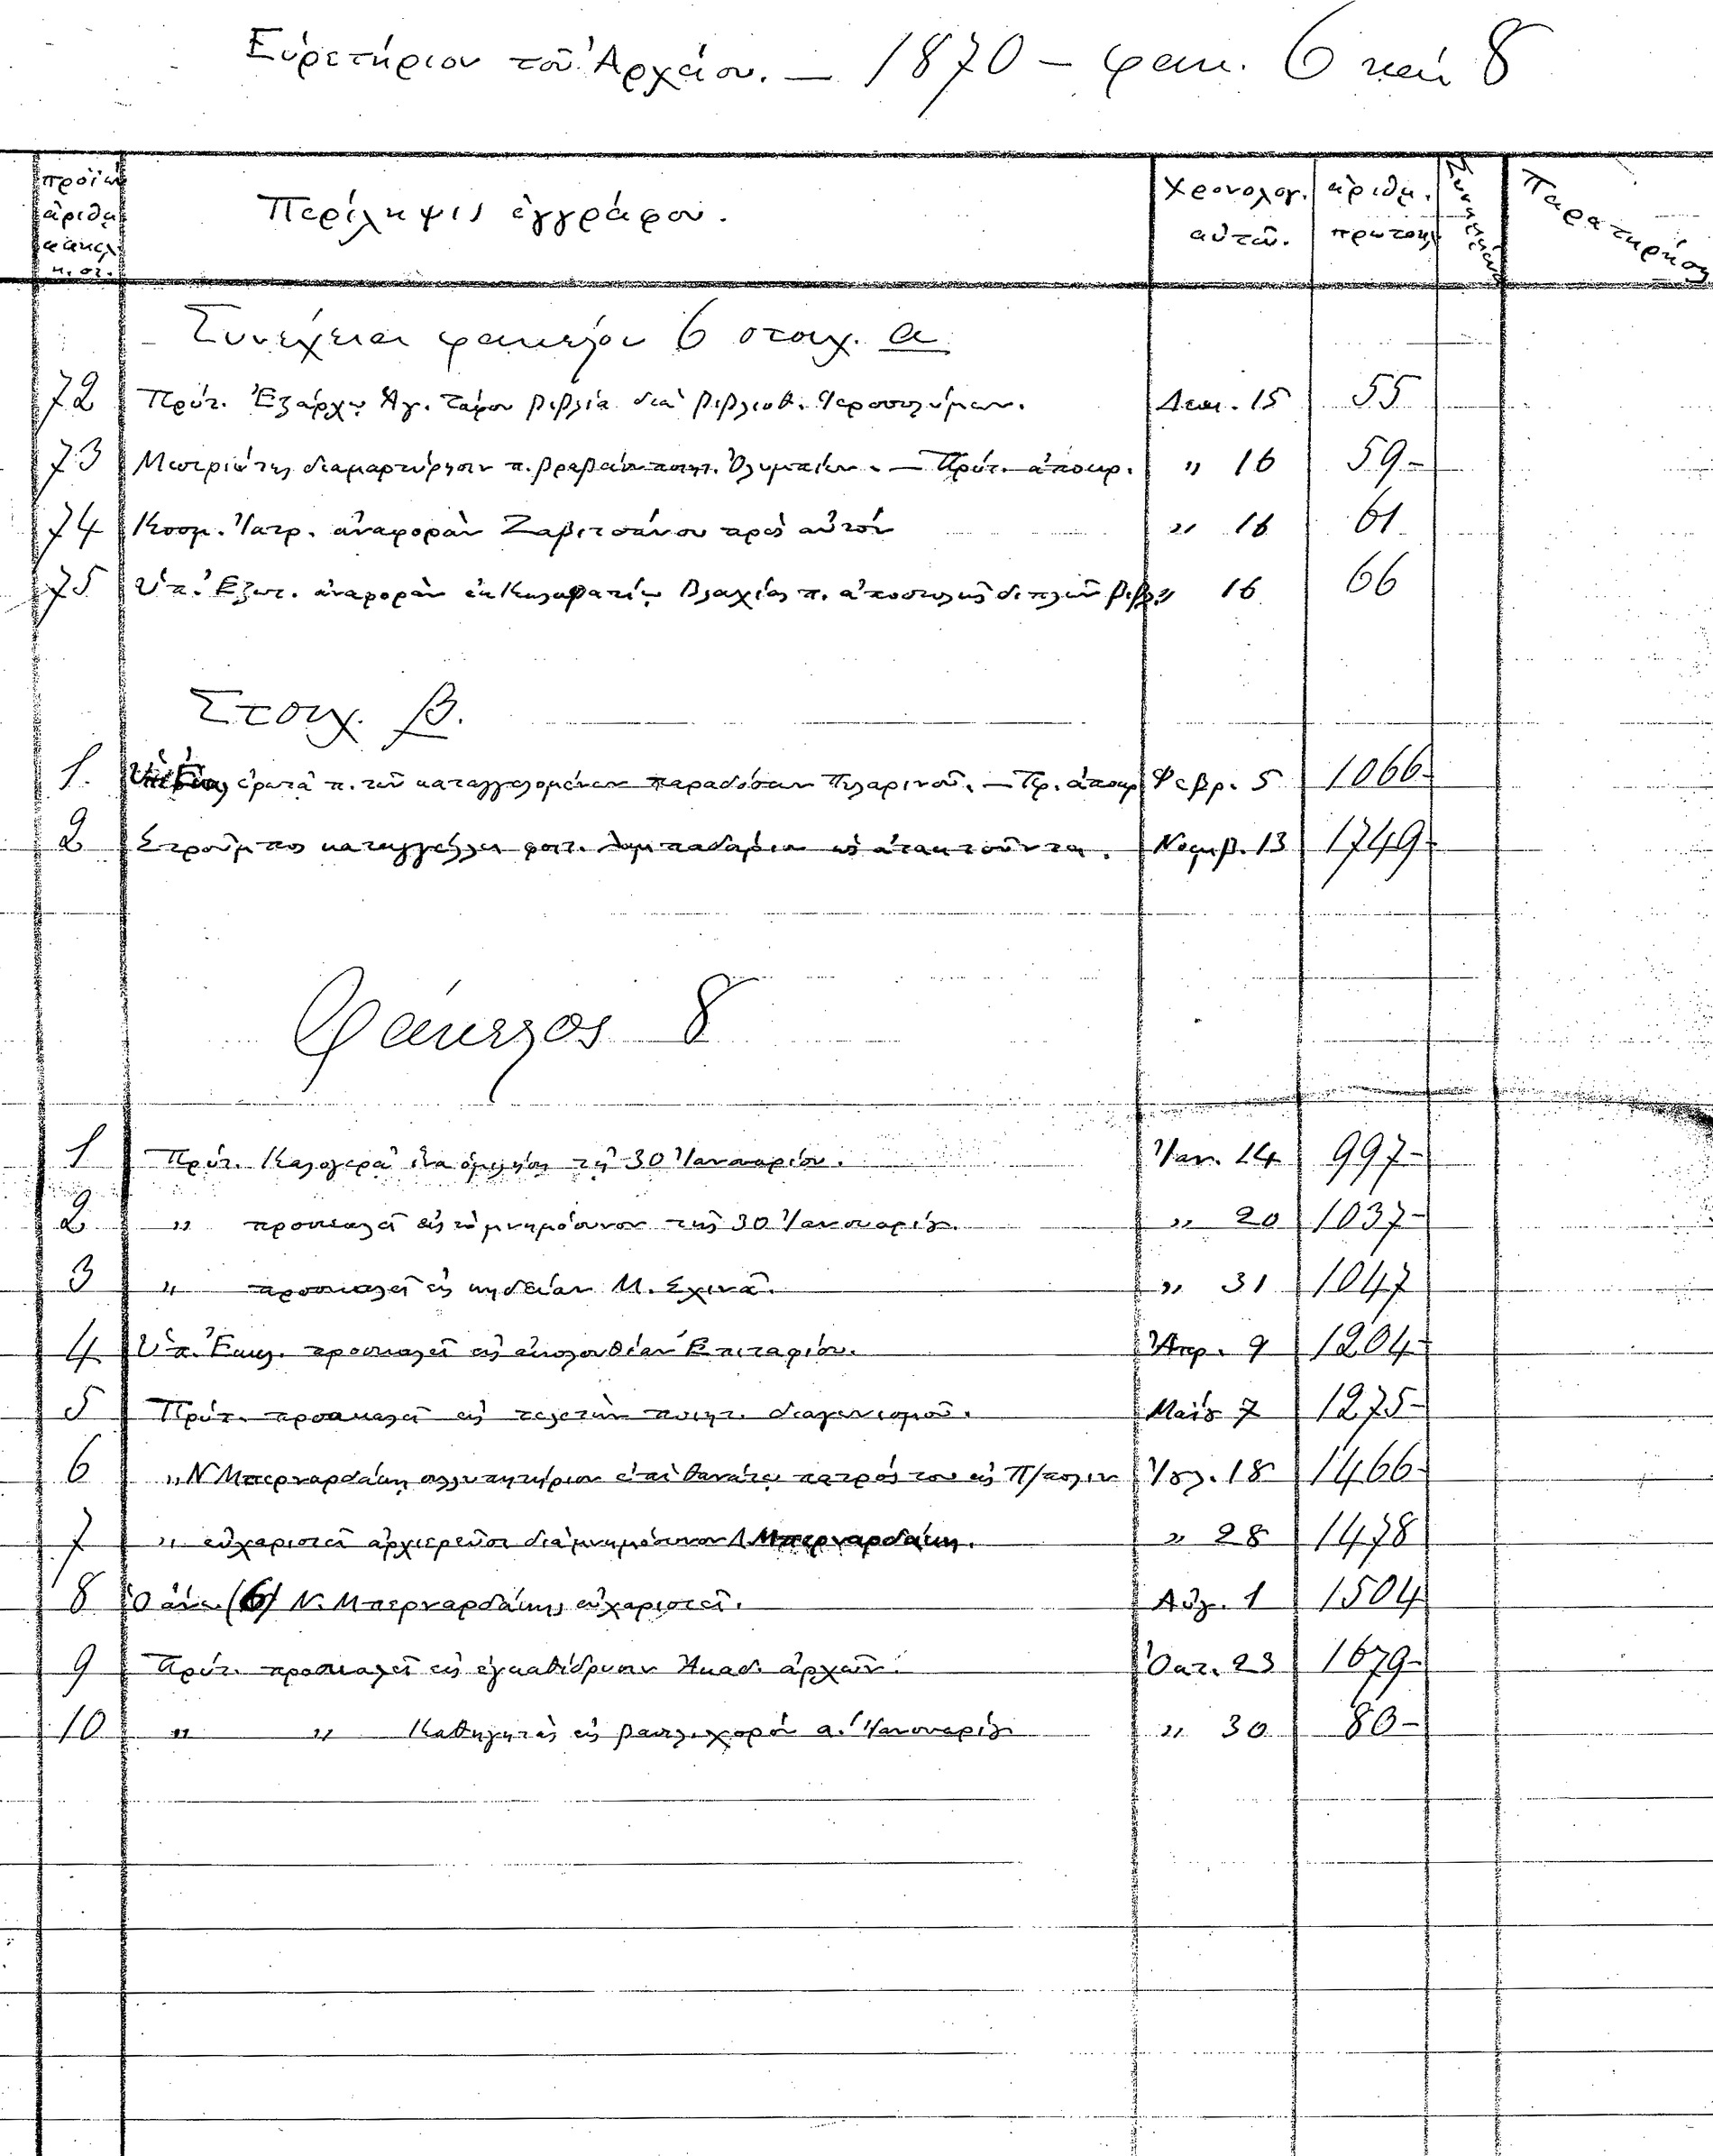 Εὑρετήριον τοῦ Ἀρχείου. — 1870 — φακ. 6 καί 8
ἀριθμ. Περίληψις ἐγγράφου. Χρονολογ. αὐτῶν. ἀριθμ. πρωτοκ. Παρατηρήσ
Συνέχεια φακέλου 6 στοιχ. α
72 Πρύτ. Ἐξάρχῳ Ἁγ. Τάφου βιβλία διὰ βιβλιοθ. Ἱεροσολύμων. Δεκ. 15 55
73 διαμαρτύρησιν π. βραβείου ποιητ. Ὀλυμπίων. — Πρύτ. ἀποκρ. " 16 59-
74 Κοσμ. Ἰατρ. ἀναφορὰν Ζαβιτσάνου πρὸς αὐτόν " 16 61
75 Ὑπ. Ἐξωτ. ἀναφορὰν ἐκ Βλαχίας π. ἀποστολῆς διπλῶν βιβλ. " 16 66
Στοιχ. β.
1. ἐρωτᾷ π. τῶν καταγγελομένων παραδόσεων Πυλαρινοῦ. — Πρ. ἀποκρ Φεβρ. 5 1066-
2 Στροῦμπος καταγγέλλει φοιτ. ὡς ἀτακτοῦντα. Νοεμβ. 13 1749-
Φάκελλος 8
1 Πρύτ. Καλογερᾷ ἵνα ὁμιλήσῃ τῇ 30 Ἰανουαρίου. Ἰαν. 14 997-
2 " προσκαλεῖ εἰς τὸ μνημόσυνον τῆς 30 Ἰανουαρίου. " 20 1037-
3 " προσκαλεῖ εἰς κηδείαν Μ. Σχινᾶ. " 31 1047
4 Ὑπ. Ἐκκλ. προσκαλεῖ εἰς ἀκολουθίαν Ἐπιταφίου. Ἀπρ. 9 1204-
5 Πρύτ. προσκαλεῖ εἰς τελετὴν ποιητ. διαγωνισμοῦ. Μαΐου 7 1275-
6 " Ν Μπερναρδάκῃ συλλυπητήριον ἐπὶ θανάτῳ πατρός του εἰς Π/πολιν Ἰουλ. 18 1466-
7 " εὐχαριστεῖ ἀρχιερεῦσι διὰ μνημόσυνον Μπερναρδάκη. " 28 1478
8 Ὁ ἄνω (6) Ν. Μπερναρδάκης εὐχαριστεῖ. Αὐγ. 1 1504
9 Πρύτ. προσκαλεῖ εἰς ἐγκαθίδρυσιν Ἀκαδ. ἀρχῶν. Ὀκτ. 23 1679-
10 " " Καθηγητὰς εἰς βασιλ. χορόν α. Ἰανουαρίου " 30 80-